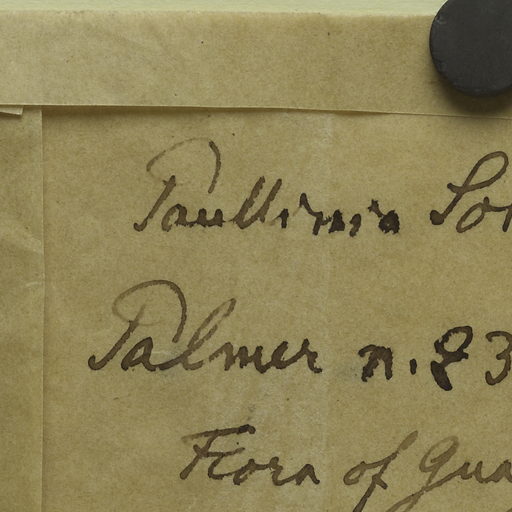 Paullinia So
Palmer n. 83
Flora of Gua